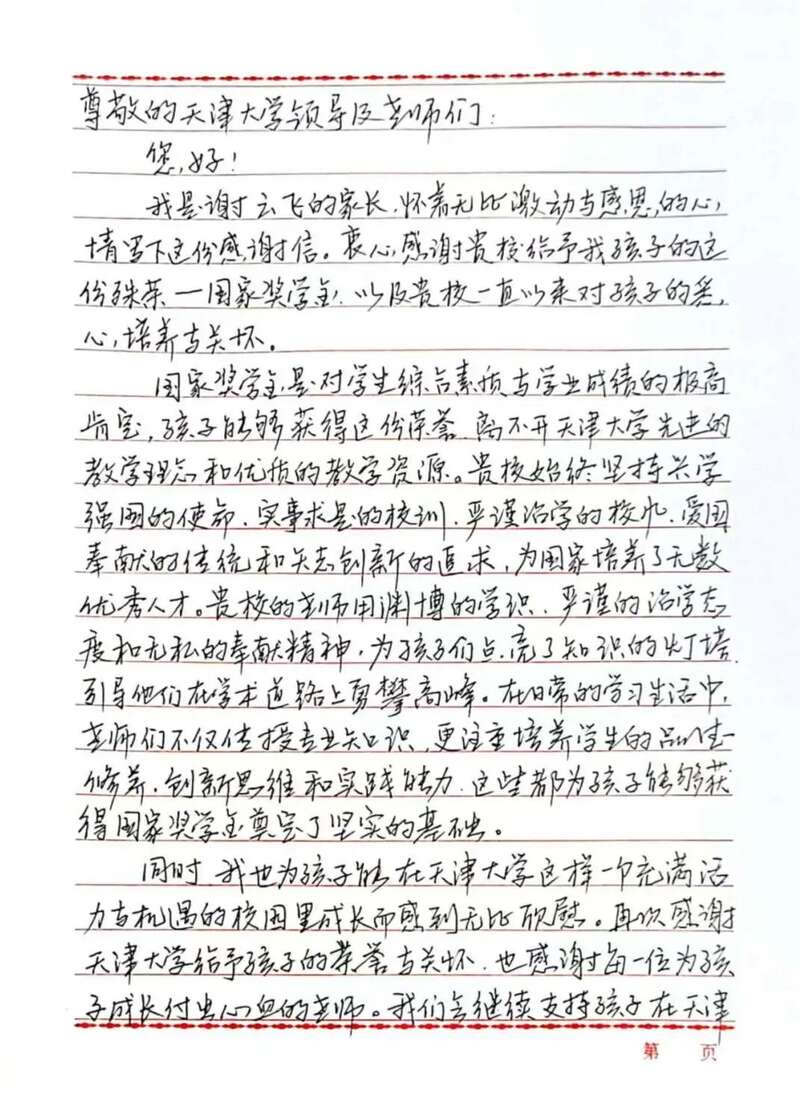 尊敬的天津大学领导及老师们：
您好！
我是谢云飞的家长，怀着无比激动与感恩的心
情写下这份感谢信。衷心感谢贵校给予我孩子的这
份殊荣—国家奖学金，以及贵校一直以来对孩子的悉
心培养与关怀。
国家奖学金是对学生综合素质与学业成绩的极高
肯定，孩子能够获得这份荣誉，离不开天津大学先进的
教学理念和优质的教学资源。贵校始终坚持兴学
强国的使命，实事求是的校训，严谨治学的校风，爱国
奉献的传统和矢志创新的追求，为国家培养了无数
优秀人才。贵校的老师用渊博的学识，严谨的治学态
度和无私的奉献精神，为孩子们点亮了知识的灯塔，
引导他们在学术道路上勇攀高峰。在日常的学习生活中，
老师们不仅传授专业知识，更注重培养学生的品性
修养，创新思维和实践能力，这些都为孩子能够获
得国家奖学金奠定了坚实的基础。
同时，我也为孩子能在天津大学这样一个充满活
力与机遇的校园里成长而感到无比欣慰。再次感谢
天津大学给予孩子的荣誉与关怀，也感谢每一位为孩
子成长付出心血的老师。我们会继续支持孩子在天津
第 页